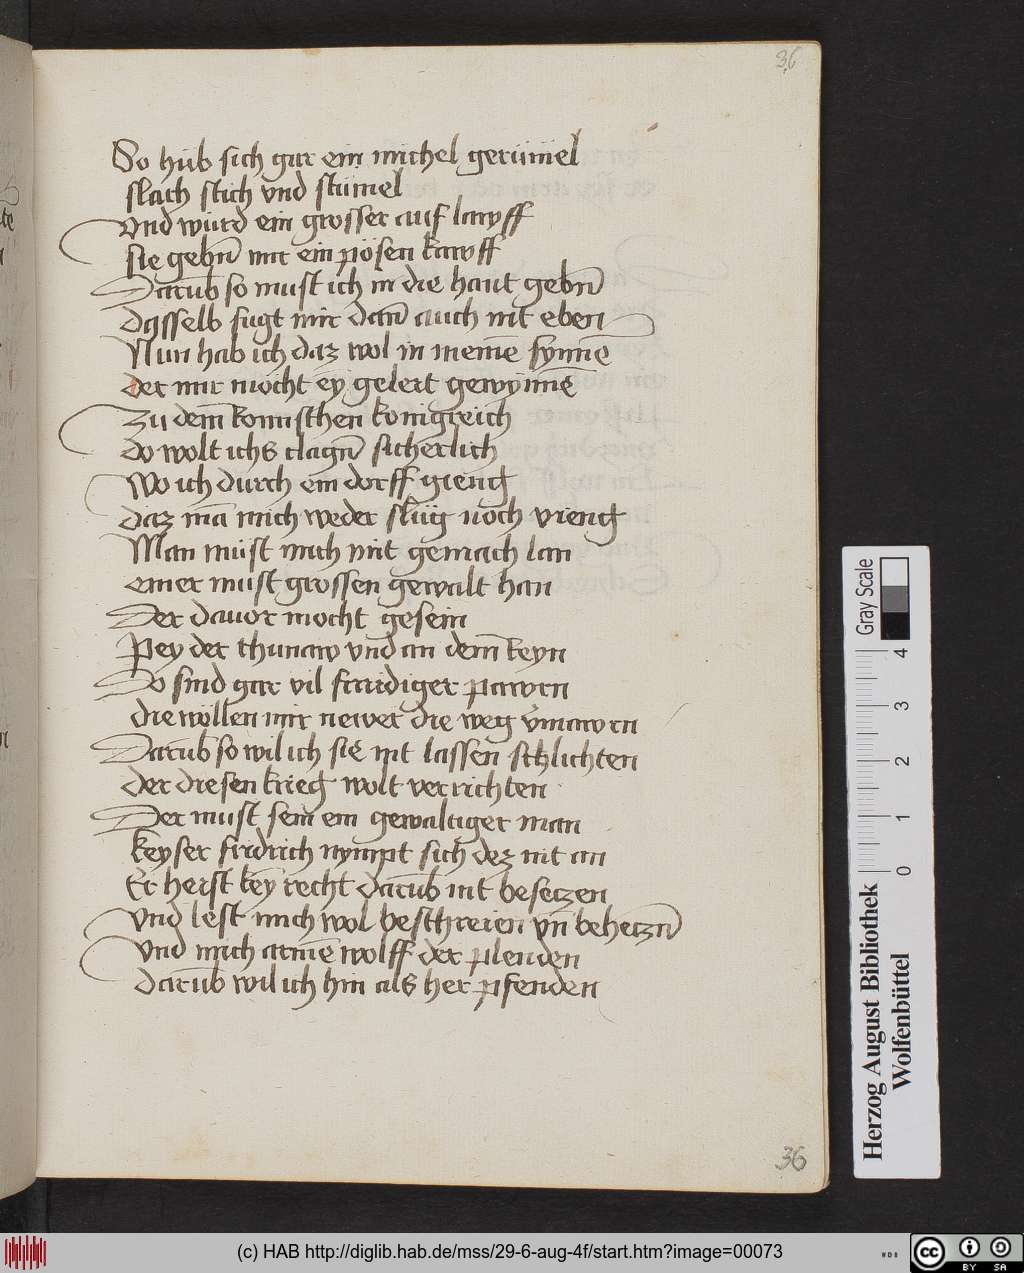 36
So hüb sich gar ein michel gerümel
slach stich vnd stümel
Vnd würd ein grosser auf lawff
sie gebn̄ mir ein pösen kawff
Darūb so must ich in die haut gebn̄
Dasselb fugt mir dan̄ auch nit eben
Nun hab ich daz wol in meinē synnē
der mir möcht ey gelert gewynnē
Zu dem̄ komischen konigreich
do wolt ichs clagn̄ sicherlich
Wo ich dürch ein dorff gieng
daz mā mich weder slüg noch vieng
Man müst mich mit gemach lan
einer must grossen gewalt han
Der dauor mocht gesein
Pey der thunaw vnd an dem̄ keyn
Do sind gar vil fraidiger pawrn
die wöllen mir newer die weg v̄mawrn
Darūb so wil ich sie nit lassen schlichten
der diesen krieg wolt verrichten
Der must sein ein gewaltiger man
keyser fridrich nympt sich dez nit an
Er herst key recht darūb nit besetzen
vnd lest mich wol beschreien vn̄ behetzn̄
Vnd mich armē wolff der plenden
darūb wil ich hin als her pfenden
36
Herzog August Bibliothek
Wolfenbüttel
Gray Scale
0 1 2 3 4
(c) HAB http://diglib.hab.de/mss/29-6-aug-4f/start.htm?image=00073
WDB
cc BY SA